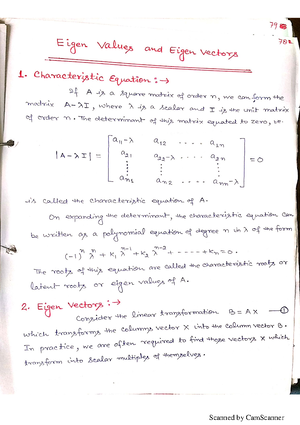 79
78
Eigen Values and Eigen Vectors
1. Characteristic Equation :→
If A is a square matrix of order n, we can form the
matrix A-λI, where λ is a scalar and I is the unit matrix
of order n. The determinant of this matrix equated to zero, i.e.
|A-λI| = | a11-λ a12 .... a1n
a21 a22-λ .... a2n
⋮ ⋮ ⋮
an1 an2 .... ann-λ | = 0
is called the characteristic equation of A.
On expanding the determinant, the characteristic equation can
be written as a polynomial equation of degree n in λ of the form
(-1)^n λ^n + k1 λ^n-1 + k2 λ^n-2 + ----- + kn = 0.
The roots of this equation are called the characteristic roots or
latent roots or eigen values of A.
2. Eigen Vectors :→
Consider the linear transformation B = AX — ①
which transforms the columns vector X into the column vector B.
In practice, we are often required to find those vectors X which
transform into scalar multiples of themselves.
Scanned by CamScanner